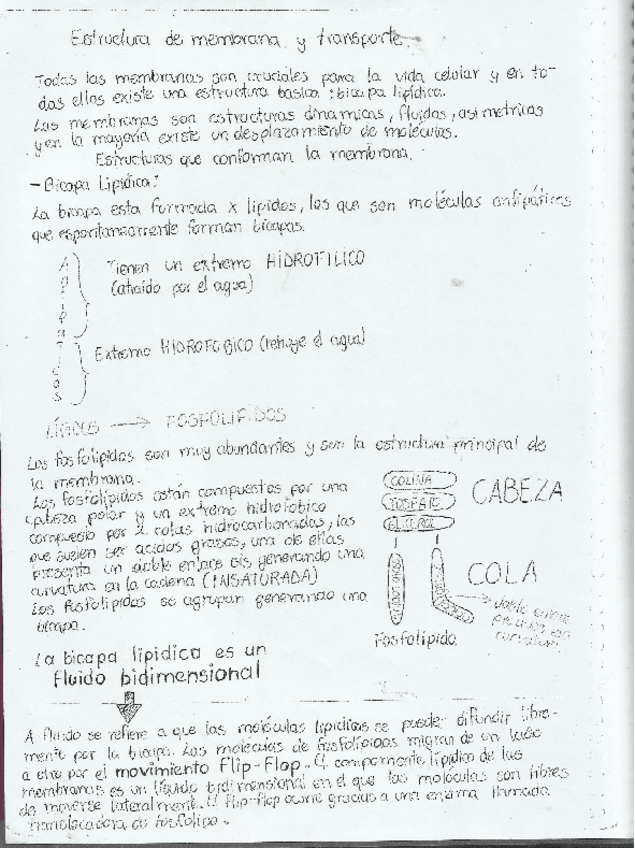 Estructura de membrana y transporte.
Todas las membranas son cruciales para la vida celular y en to-
das ellas existe una estructura basica : bicapa lipídica.
Las membranas son estructuras dinamicas, fluidas, asimetricas
y en la mayoría existe un desplazamiento de moléculas.
Estructuras que conforman la membrana.
- Bicapa Lipídica:
La bicapa esta formada x lipidos, los que son moléculas anfipáticas
que espontaneamente forman bicapas.
Anfipaticas
Tienen un extremo HIDROFILICO
(atraído por el agua)
Extremo HIDROFOBICO (rehuye el agua)
LÍPIDOS → FOSFOLIPIDOS
Los fosfolipidos son muy abundantes y son la estructura principal de
la membrana.
Los fosfolipidos están compuestos por una
cabeza polar y un extremo hidrofobico
compuesto por 2 colas hidrocarbonadas, las
que suelen ser acidos grasos, una de ellas
presenta un doble enlace cis generando una
curvatura en la cadena (INSATURADA)
Los fosfolipidos se agrupan generando una
bicapa.
COLINA
FOSFATO
GLICEROL
CABEZA
COLA
doble enlace
produce una
curvatura.
Fosfolipido.
La bicapa lipidica es un
fluido bidimensional
A fluido se refiere a que las moléculas lipidicas se puede difundir libre-
mente por la bicapa. Las moleculas de fosfolipidos migran de un lado
a otro por el movimiento Flip-Flop. El componente lípidico de las
membranas es un líquido bidimensional en el que las moléculas son libres
de moverse lateralmente. El flip-flop ocurre gracias a una enzima llamada
translocadora de fosfolipo.